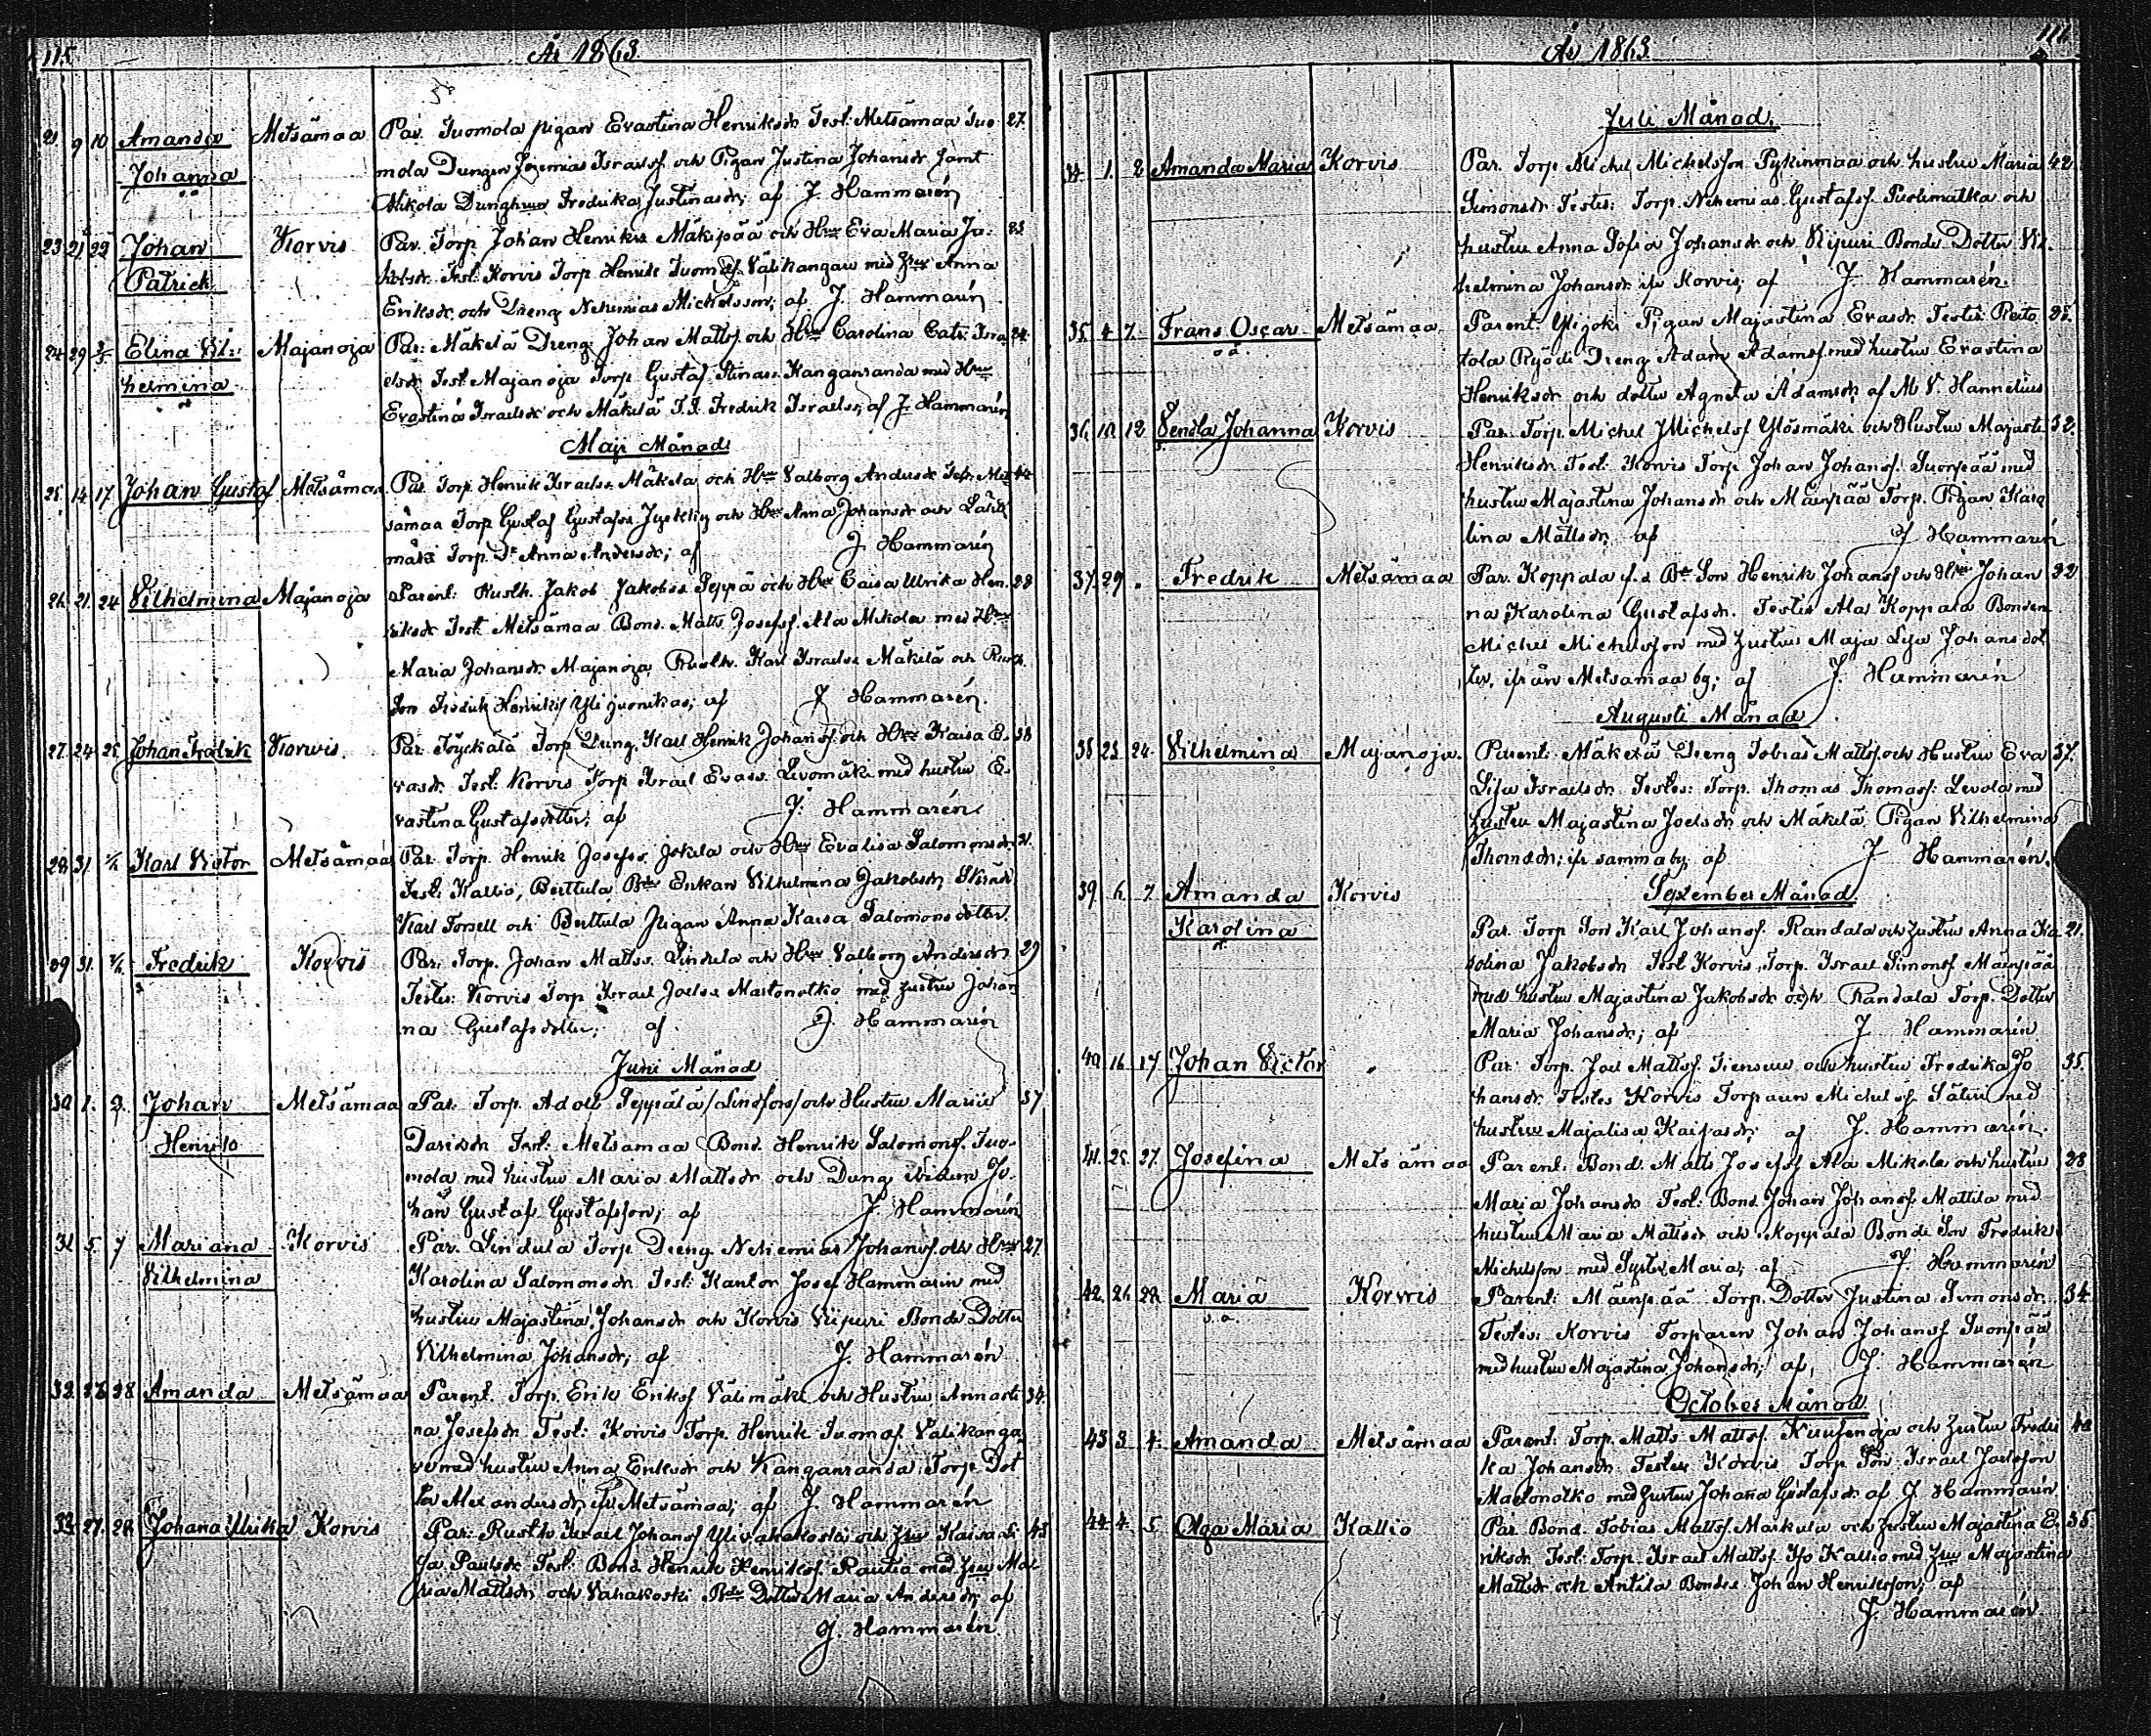 115.
År 1863.
21. 9 10 Amanda Metsämaa Par. Tuomola pigan Evastina Henriksdr Test: Metsämaa Tuo- 27.
Johanna mola Drengen Jeremias Israelss. och Pigan Justina Johansdr samt
o.ä. Mikola Drenghust. Fredrika Justinasdr; af J. Hammarén
23 21 22 Johan Korvis Par. Torp Johan Henrikss Mäkipää och Hru Eva Maria Ja-
Patrick kobsdr. Test. Korvis Torp. Henrik Tuomas. Välikangau med Hru Anna
Eriksdr. och Dreng Nehemias Michelsson; af J. Hammarén
24 29 3/5 Elina Vil- Majanoja Par: Mäkelä Dreng: Johan Mattss. och Hru Carolina Catr. Isra- 24
helmina elsdr Test. Majanoja Torp Gustaf Stinass. Kanganranda med Hru
Evastina Israelsdr och Mäkelä Fredrik Israelss; af J. Hammarén
Maji Månad
25. 14 17 Johan Gustaf Metsämaa Par. Torp. Henrik Israelss. Mäkela och Hru Valborg Andersdr Test. Met- 44
sämaa Torp Gustaf Gustafss och Hru Anna Johansdr och
mäki Torp. Dr Anna Andersdr; af J. Hammarén
26. 21. 24 Vilhelmina Majanoja Parent: Rusth. Jakob Jakobss Seppä och Hru Caisa Ulrika Hen- 28
riksdr Test. Metsämaa Bond. Matts Josefss. Ala Mikola med Hru
Maria Johansdr. Majanoja Rusth. Karl Israelss Mäkelä och Rusth.
Son Fredrik Henrikss Yli; af J. Hammarén.
27. 24 25 Johan Fredrik Korvis. Par. Torp Dreng. Karl Henrik Johanss. och Hru Kaisa E- 38
vasdr. Test: Korvis Torp Israel Evass. Levomäki med hustru E-
vastina Gustafsdotter; af J. Hammarén
28. 31. Karl Victor Metsämaa Par. Torp. Henrik Josefss. Jokela och Hru Evalisa Salomonsdr 21.
Test. Kallio, Berttula Enkan Vilhelmina Jakobsdr,
Karl Forsell och Berttula Pigan Anna Kaisa Salomonsdotter.
29 31. Fredrik Korvis Par. Torp. Johan Mattss. Lindula och Hru Valborg Andersdr. 29
Testes: Korvis Torp Israel Joelss Martonotko med hustru Johan-
na Gustafsdotter; af J. Hammarén
Juni Månad
30 1. 2. Johan Metsämaa Par. Torp. Adolf Seppälä/Lindfors/och Hustru Maria 37
Henrik Davidsdr Test: Metsämaa Bond. Henrik Salomonss. Tuo-
mola med hustru Maria Mattsdr och Dreng ibidem Jo-
han Gustaf Gustafsson; af J. Hammarén
31 5. 7 Mariana Korvis Par. Lindula Torp Dreng Nehemias Johanss. och Hru 27.
Vilhelmina Karolina Salomonsdr. Test: Kantor Josef Hammarén med
hustru Majastina Johansdr och Korvis Viipuri Bonde Dotter
Vilhelmina Johansdr; af J. Hammarén
32. 26 28. Amanda Metsämaa Parent. Torp. Erik Erikss Välimäki och Hustru Annasti- 34.
na Josefsdr Test: Korvis Torp. Henrik Tuomas. Välikanga-
med hustru Anna Eriksdr och Kanganranda Torp Dot-
ter Alexandersdr, ifr Metsämaa; af J. Hammarén
33. 27. 28. Johana Ulrika Korvis Par. Rusth Israel Johanss Ylivahakoski och hru Kaisa Li- 43
sa Paulsdr. Test: Bond. Henrik Henrikss. Rautia med hru Ma-
ria Mattsdr och Vahakoski Bde Dotter Maria Andersdr; af
J. Hammarén.
År 1863.
Juli Månad.
34. 1. 2 Amanda Maria Korvis Par. Torp Michel Michelsson Pykinmaa och hustru Maria 42
Simonsdr Testes: Torp. Nehemias Gustafss. Puolimatka och
hustru Anna Sofia Johansdr och Viipuri Bonde Dotter Vil-
helmina Johansdr ifr Korvis; af J. Hammarén.
35. 4 7. Frans Oscar Metsämaa Parent: Ylijoki Pigan Majastina Evasdr Testes
o.ä. tola Ryödi Dreng Adam Adamss. med hustru Evastina
Henriksdr och dotter Agneta Adamsdr. af M V Hannelius
36. 10. 12 Vendla Johanna Korvis Par. Torp. Michel Michelss Ylösmäki och Hustru Majasti. 32.
Henriksdr. Test: Korvis Torp Johan Johanss. Suonpää med
hustru Majastina Johansdr och Mäenpää Torp. Pigan Karo-
lina Mattsdr; af J Hammarén
37. 29 Fredrik Metsämaa Par. Koppala f.d Bde Son Henrik Johanss och Hru Johan- 22
na Karolina Gustafsdr. Testes Ala Koppala Bonden
Michel Michelsson med hustru Maja Lisa Johansdot-
ter, ifrån Metsämaa by; af J. Hammarén
Augusti Månad
38 23. 24. Vilhelmina Majanoja. Parent: Mäkelä Dreng Tobias Mattss. och Hustru Eva 37.
Lisa Israelsdr Testes: Torp. Thomas Thomass. Levola med
hustru Majastina Joelsdr och Mäkelä Pigan Vilhelmina
Thomsdr; ifr samma by, af J Hammarén.
September Månad
39. 6. 7. Amanda Korvis
Karolina Par. Torp Son Karl Johanss. Randala och hustru Anna Ka- 21.
rolina Jakobsdr Test Korvis, Torp. Israel Simonss Mäenpää
med hustru Majastina Jakobsdr och Randala Torp. Dotter
Maria Johansdr; af J Hammarén
40 16 17 Johan Victor " Par. Torp. Joel Mattss. Tiensuu och hustru Fredrika Jo- 35.
hansdr. Testes Korvis Torparen Michel med
hustru Majalisa Kaisasdr; af J. Hammarén.
41. 25. 27. Josefina Metsämaa Parent: Bond. Matts Josefss Ala Mikola och hustru 28
Maria Johansdr Test: Bond. Johan Johanss. Mattila med
hustru Maria Mattsdr och Koppala Bonde Son Fredrik
Michelsson med Syster Maria; af J. Hammarén
42. 26. 28. Maria Korvis Parent: Mäenpää Torp. Dotter Justina Simonsdr. 34.
o.ä. Testes: Korvis Torparen Johan Johanss Suonpää
med hustru Majastina Johansdr; af, J. Hammarén
October Månad
43 3 4. Amanda Metsämaa Parent: Torp. Matts Mattss. Kuusenoja och hustru Fredri- 40
ka Johansdr. Testes Korvis Torp Son Israel Joelsson
Martonotko med hustru Johana Gustafsdr. af J Hammarén
44. 4. 5. Olga Maria Kallio Par. Bond. Tobias Mattss. Markula och hustru Majastina E- 35
riksdr. Test: Torp. Israel Mattss. Iso Kallio med hru Majastina
Mattsdr och Antila Bonde Johan Henriksson; af
J. Hammarén